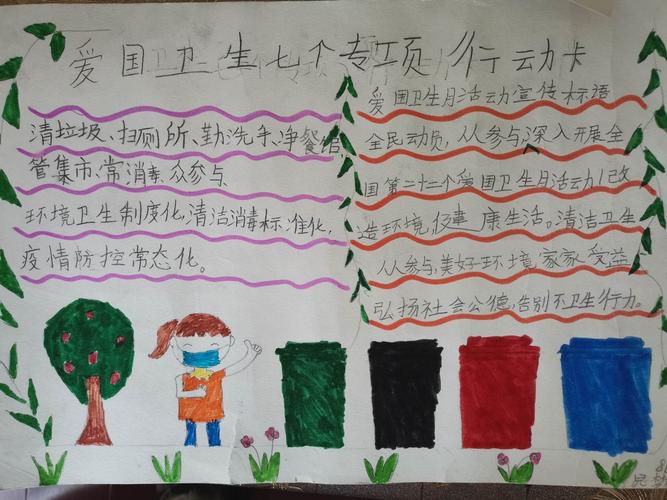 爱国卫生七个专项行动卡
清垃圾、扫厕所、勤洗手、净餐馆、
管集市、常消毒、众参与、
环境卫生制度化,清洁消毒标准化,
疫情防控常态化。
爱国卫生月活动宣传标语
全民动员,人人参与,深入开展全
国第二十二个爱国卫生月活动!改
造环境,促建康生活。清洁卫生
人人参与,美好环境,家家受益
弘扬社会公德,告别不卫生行力。